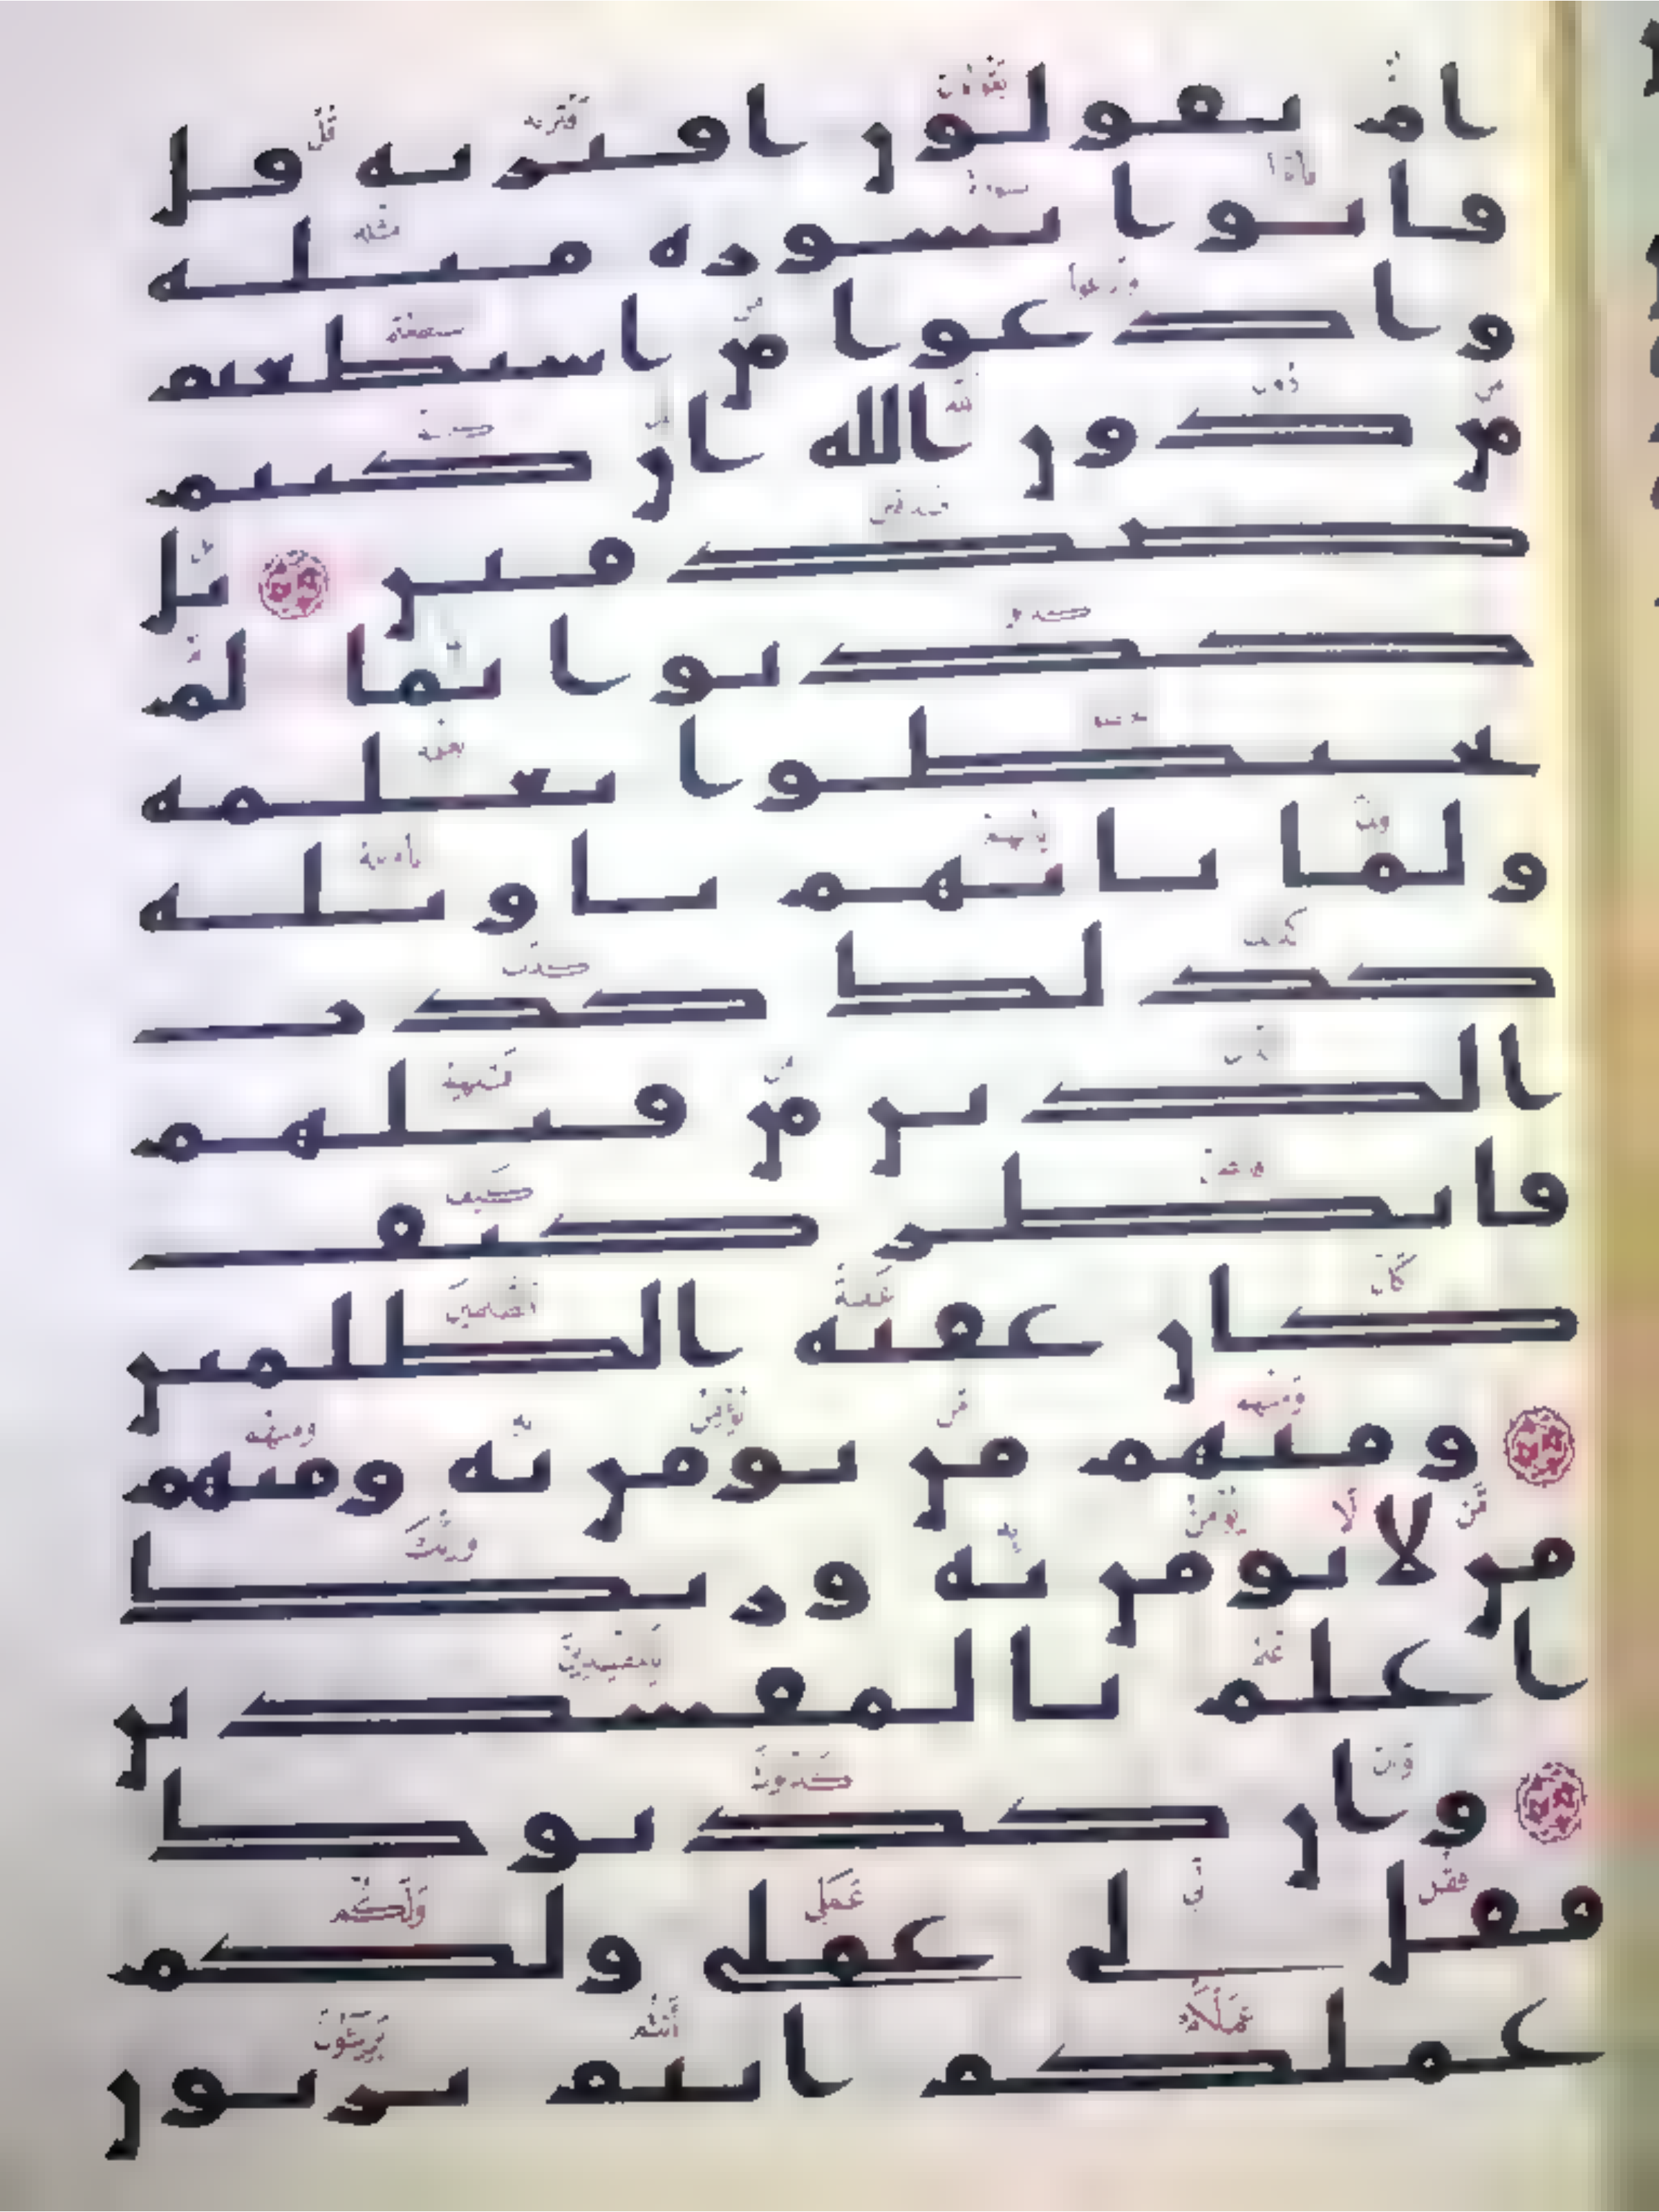 ام يقولون افتريه قل
فاتوا بسورة مثله
وادعوا من استطعتم
من دون الله ان كنتم
صدقين بل
كذبوا بما لم
يحيطوا بعلمه
ولما ياتهم تاويله
كذلك كذب
الذين من قبلهم
فانظر كيف
كان عقبة الظلمين
ومنهم من يومن به ومنهم
من لا يومن به وربك
اعلم بالمفسدين
وان كذبوك
فقل لي عملي ولكم
عملكم انتم بريون